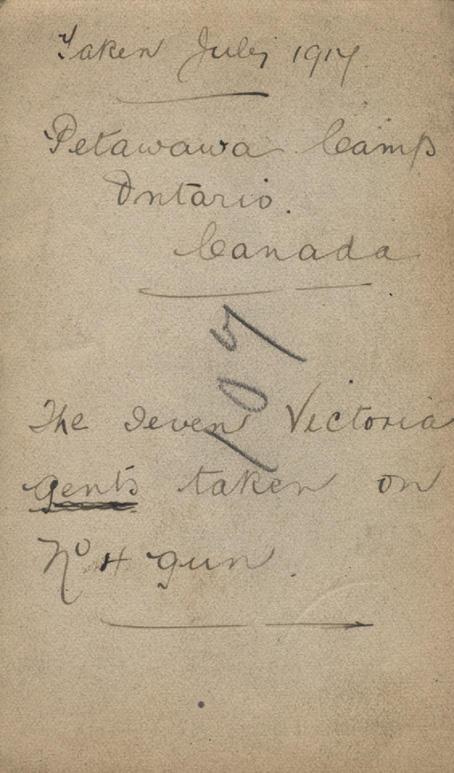 Taken July 1917.
Petawawa Camp
Ontario.
Canada
107
The Seven Victoria
gents taken on
No 4 gun.